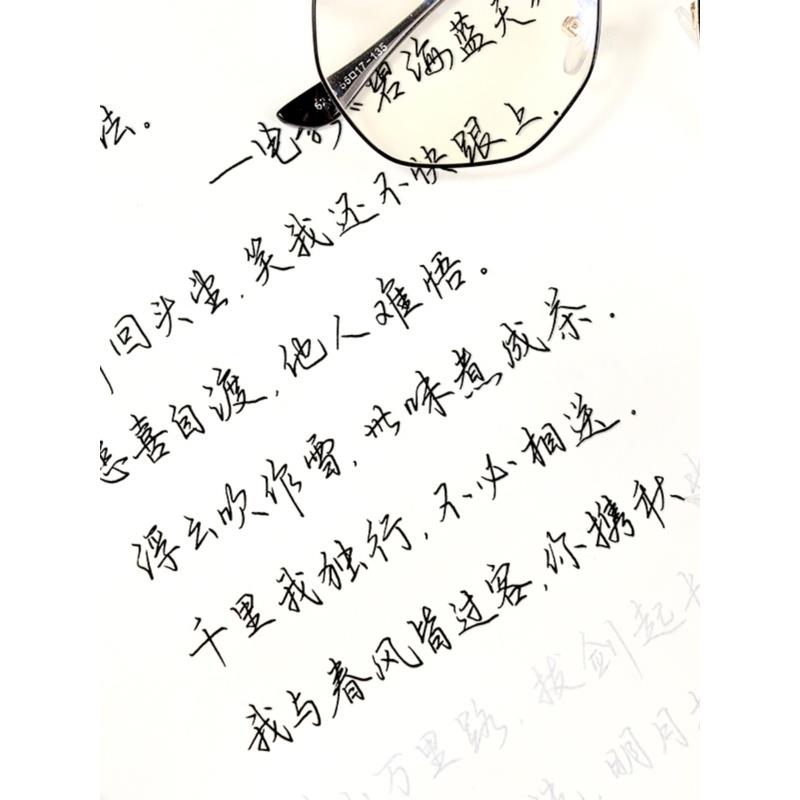 55□17-135
法。
一电影《碧海蓝天
回头望,笑我还不快跟上.
悲喜自渡,他人难悟。
浮云吹作雪,世味煮成茶.
千里我独行,不必相送.
我与春风皆过客,你携秋
万里路,拔剑起
明月